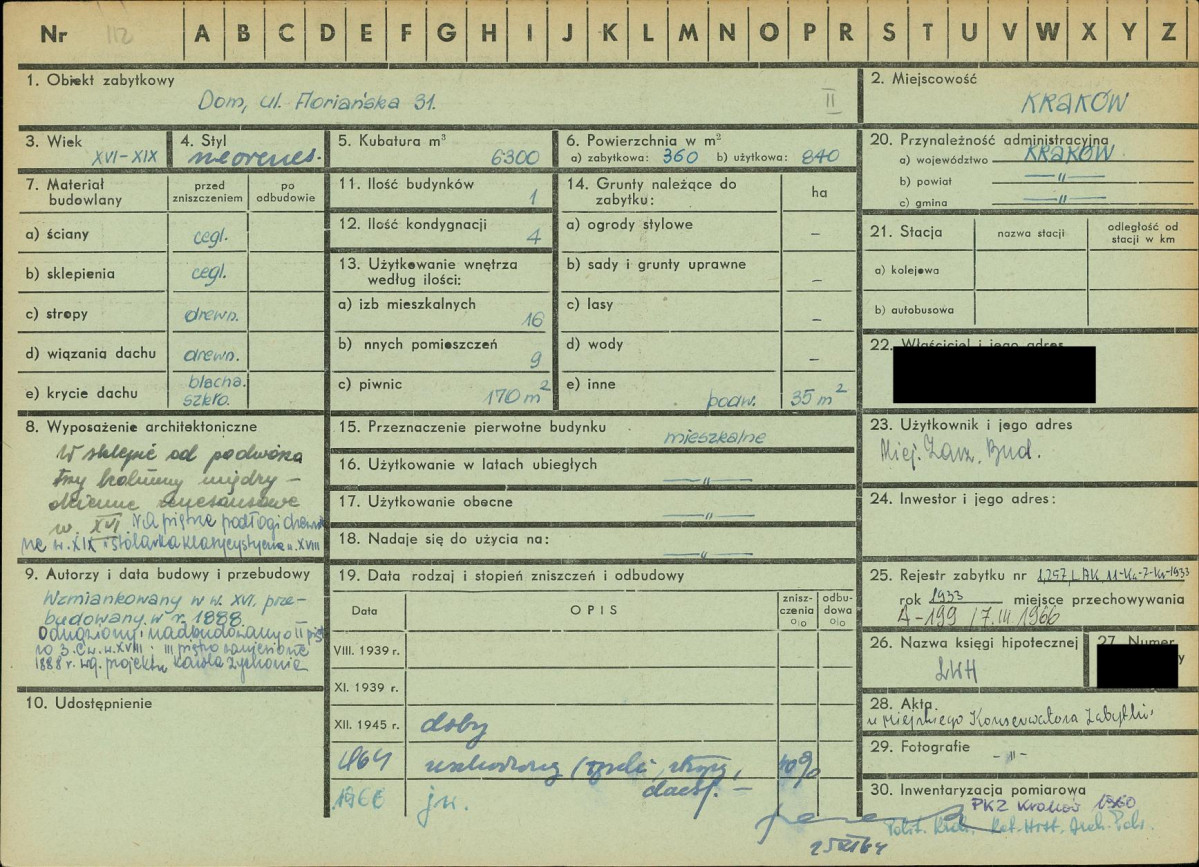 Nr 112 A B C D E F G H I J K L M N O P R S T U V W X Y Z
1. Obiekt zabytkowy
Dom, ul. Floriańska 31. II
2. Miejscowość
KRAKÓW
3. Wiek
XVI-XIX
4. Styl
neorenes.
5. Kubatura m³
6300
6. Powierzchnia w m²
a) zabytkowa: 360 b) użytkowa: 840
20. Przynależność administracyjna
a) województwo KRAKÓW.
b) powiat —„—
c) gmina —„—
7. Materiał budowlany
przed zniszczeniem
po odbudowie
a) ściany cegl.
b) sklepienia cegl.
c) stropy drewn.
d) wiązania dachu drewn.
e) krycie dachu blacha. szkło.
11. Ilość budynków
1
12. Ilość kondygnacji
4
13. Użytkowanie wnętrza według ilości:
a) izb mieszkalnych
16
b) nnych pomieszczeń
9
c) piwnic
170 m²
14. Grunty należące do zabytku:
ha
a) ogrody stylowe –
b) sady i grunty uprawne –
c) lasy –
d) wody –
e) inne podw. 35 m²
21. Stacja
nazwa stacji
odległość od stacji w km
a) kolejowa
b) autobusowa
22. Właściciel i jego adres
8. Wyposażenie architektoniczne
W sklepie od podwórza
trzy kolumny między-
okienne renesansowe
w. XVI. Na piętrze podłogi drewnia
ne w. XIX i stolarka klasycystyczna w. XVIII
15. Przeznaczenie pierwotne budynku
mieszkalne
16. Użytkowanie w latach ubiegłych
—„—
17. Użytkowanie obecne
—„—
18. Nadaje się do użycia na:
—„—
23. Użytkownik i jego adres
Miej. Zarz. Bud.
24. Inwestor i jego adres:
9. Autorzy i data budowy i przebudowy
Wzmiankowany w w. XVI, prze-
budowany w r. 1888.
Odnowiony i nadbudowany o II pięt
ro 3. ćw. w. XVIII. III piętro
1888 r. wg. projektu Karola Żychonia
10. Udostępnienie
19. Data rodzaj i stopień zniszczeń i odbudowy
Data
OPIS
znisz-czenia %
odbu-dowa %
VIII. 1939 r.
XI. 1939 r.
XII. 1945 r. dobry
1964 uszkodzony (tynki, stropy, 40%
dach. –
1966 jw.
25. Rejestr zabytku nr
rok 1933 miejsce przechowywania
A-199 / 7. III 1966
26. Nazwa księgi hipotecznej
LWH
27. Numer
28. Akta
u Miejskiego Konserwatora Zabytków
29. Fotografie
-„-
30. Inwentaryzacja pomiarowa
PKZ Kraków 1960
Polit. Krak. Kat. Hist. Arch. Pol.
25 XI 64